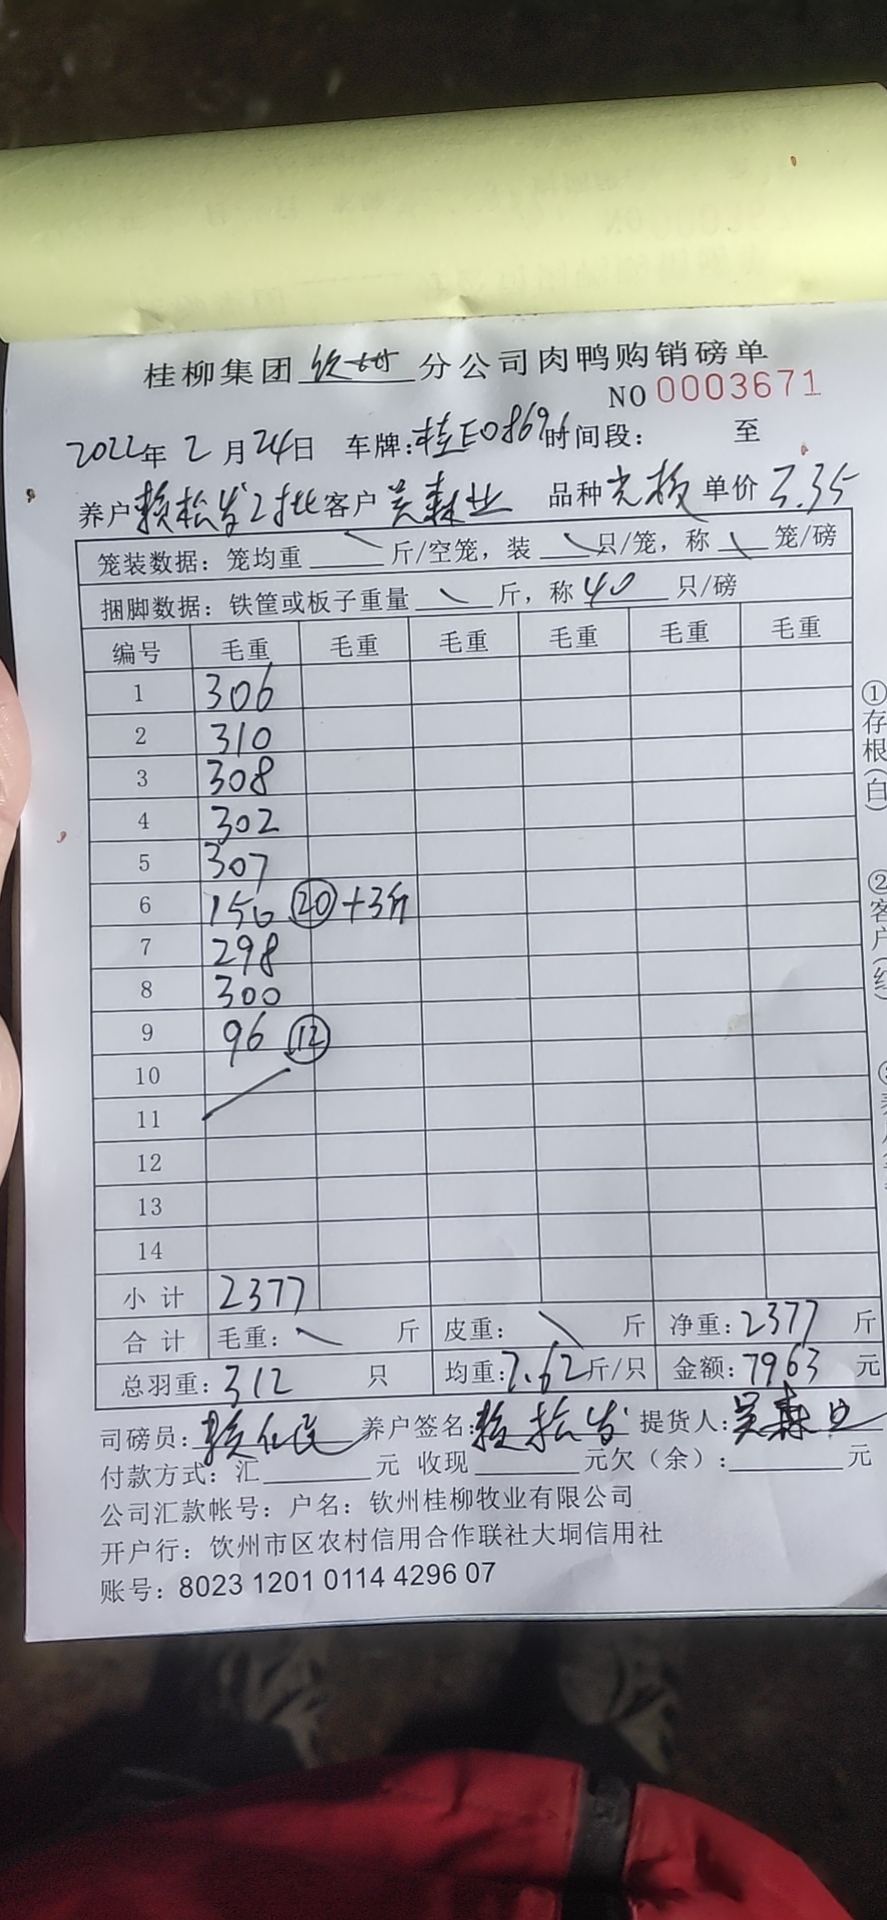 桂柳集团钦州分公司肉鸭购销磅单
NO 0003671
2022年2月24日 车牌:桂E0869 时间段: 至
养户赖松发2批客户吴森业 品种光板单价3.35
笼装数据：笼均重 \ 斤/空笼，装 \ 只/笼，称 \ 笼/磅
捆脚数据：铁筐或板子重量 \ 斤，称40只/磅
编号 毛重 毛重 毛重 毛重 毛重 毛重
1 306
2 310
3 308
4 302
5 307
6 150 ⑳+3斤
7 298
8 300
9 96 ⑫
10
11
12
13
14
小计 2377
合计 毛重: \ 斤 皮重: \ 斤 净重:2377斤
总羽重:312只 均重:7.62斤/只 金额:7963元
司磅员: 养户签名:赖松发 提货人:吴森业
付款方式:汇 元 收现 元欠（余）: 元
公司汇款帐号：户名：钦州桂柳牧业有限公司
开户行：钦州市区农村信用合作联社大垌信用社
账号：8023 1201 0114 4296 07
①存根(白)
②客户(红)